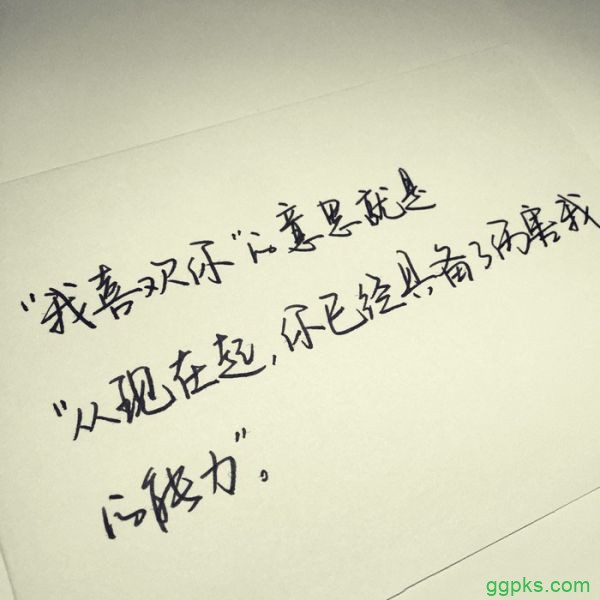 “我喜欢你”的意思就是
“从现在起,你已经具备了伤害我
的能力”。
ggpks.com